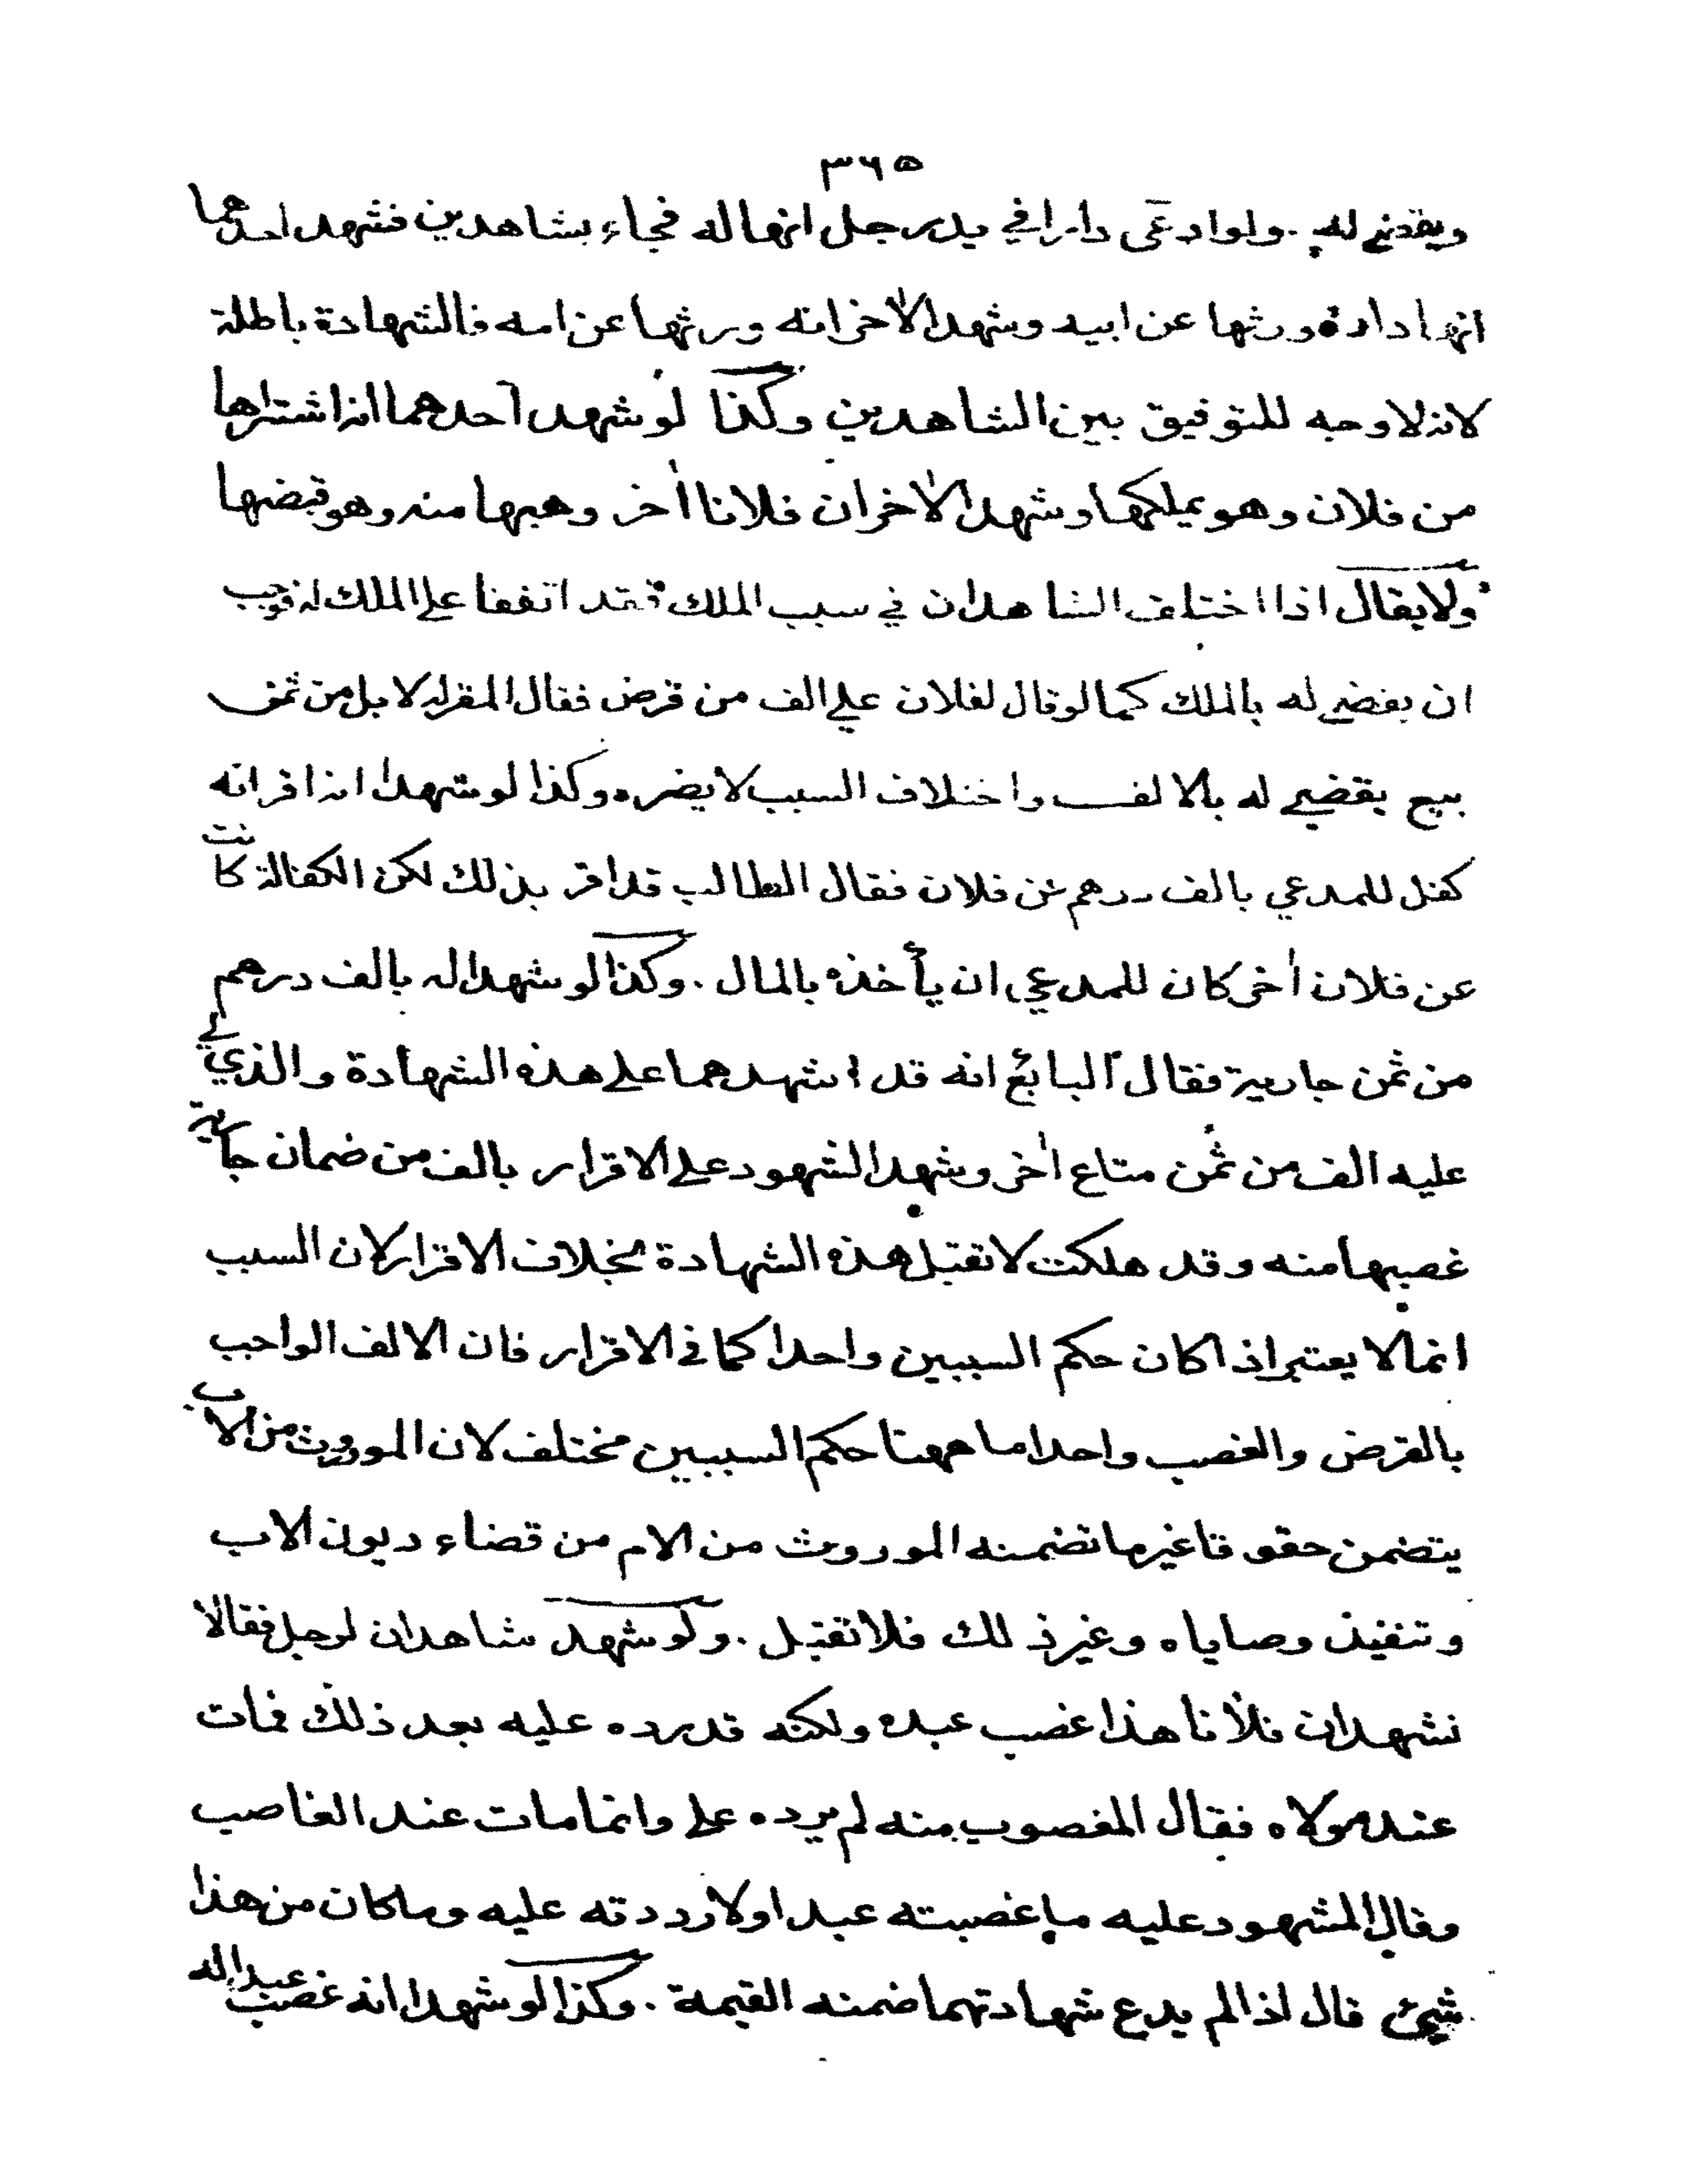 ٣٦٥
ويقضي له . ولو ادعى دارا في يد رجل انها له فجاء بشاهدين فشهد احدهما
انها داره ورثها عن ابيه وشهد الاخر انه ورثها عن امه فالشهادة باطلة
لانه لا وجه للتوفيق بين الشاهدين وكذا لو شهد احدهما انه اشتراها
من فلان وهو يملكها وشهد الاخر ان فلانا اٰخر وهبها منه وهو قبضها
ولا يقال اذا اختلف الشاهدان في سبب الملك فقد اتفقا على الملك له فوجب
ان يقضي له بالملك كما لو قال لفلان علي الف من قرض فقال المقر له لا بل من ثمن
بيع يقضي له بالالف واختلاف السبب لا يضره وكذا لو شهدا انه اقر انه
كفل للمدعي بالف درهم عن فلان فقال الطالب قد اقر بذلك لكن الكفالة كانت
عن فلان اٰخر كان للمدعي ان يأخذه بالمال . وكذا لو شهدا له بالف درهم
من ثمن جارية فقال البائع انه قد اشهدهما على هذه الشهادة والذي لي
عليه الف من ثمن متاع اٰخر وشهد الشهود على الاقرار بالف من ضمان جارية
غصبها منه وقد هلكت لا تقبل هذه الشهادة بخلاف الاقرار لان السبب
انما لا يعتبر اذا كان حكم السببين واحدا كما في الاقرار فان الالف الواجب
بالقرض والغصب واحد اما ههنا حكم السببين مختلف لان الموروث من الاب
يتضمن حقوقا غير ما تضمنه الموروث من الام من قضاء ديون الاب
وتنفيذ وصاياه وغير ذلك فلا تقبل . ولو شهد شاهدان لرجل فقالا
نشهد ان فلانا هذا غصب عبده ولكنه قد رده عليه بعد ذلك فمات
عند مولاه فقال المغصوب منه لم يرده علي وانما مات عند الغاصب
وقال المشهود عليه ما غصبته عبدا ولا رددته عليه وما كان من هذا
شيئ قال اذا لم يدع شهادتهما ضمنه القيمة . وكذا لو شهدا انه غصب عبدا له